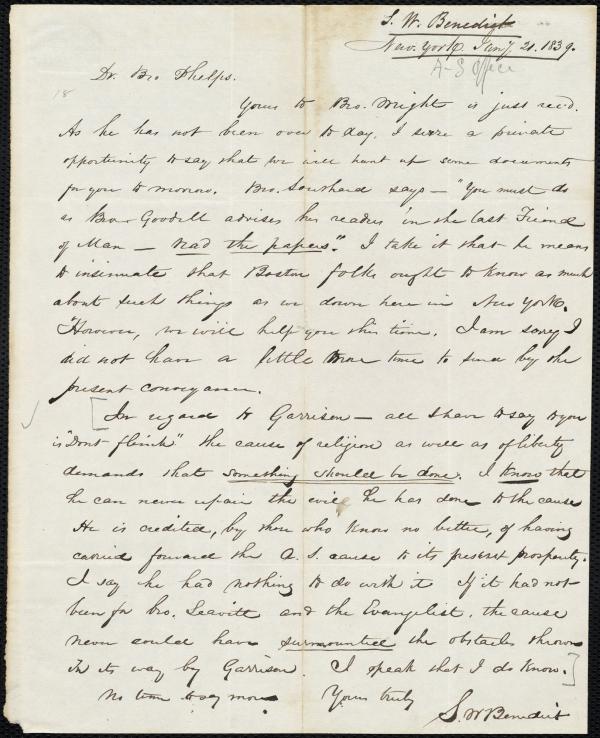 S. W. Benedict
New York Jany. 21. 1839.
A-S Office
18
Dr. Bro Phelps.
Yours to Bro. Wright is just rec'd.
As he has not been over to day, I seize a private
opportunity to say that we will hunt up some documents
for you to morrow. Bro. Southard says — "You must do
as Bro Goodell advises his readers in the last Friend
of Man — read the papers". I take it that he means
to insinuate that Boston folks ought to know as much
about such things as we down here in New York.
However, we will help you this time. I am sorry I
did not have a little more time to send by the
present conveyance.
[In regard to Garrison — all I have to say to you
is "Dont flinch" the cause of religion as well as of liberty
demands that something should be done. I know that
he can never repair the evil he has done to the cause
He is credited, by those who know no better, of having
carried forward the A. S. cause to its present prosperity.
I say he had nothing to do with it If it had not
been for bro. Leavitt and the Evangelist, the cause
never could have surmounted the obstacles thrown
in its way by Garrison. I speak that I do know.]
No time to say more. Yours truly
S. W Benedict